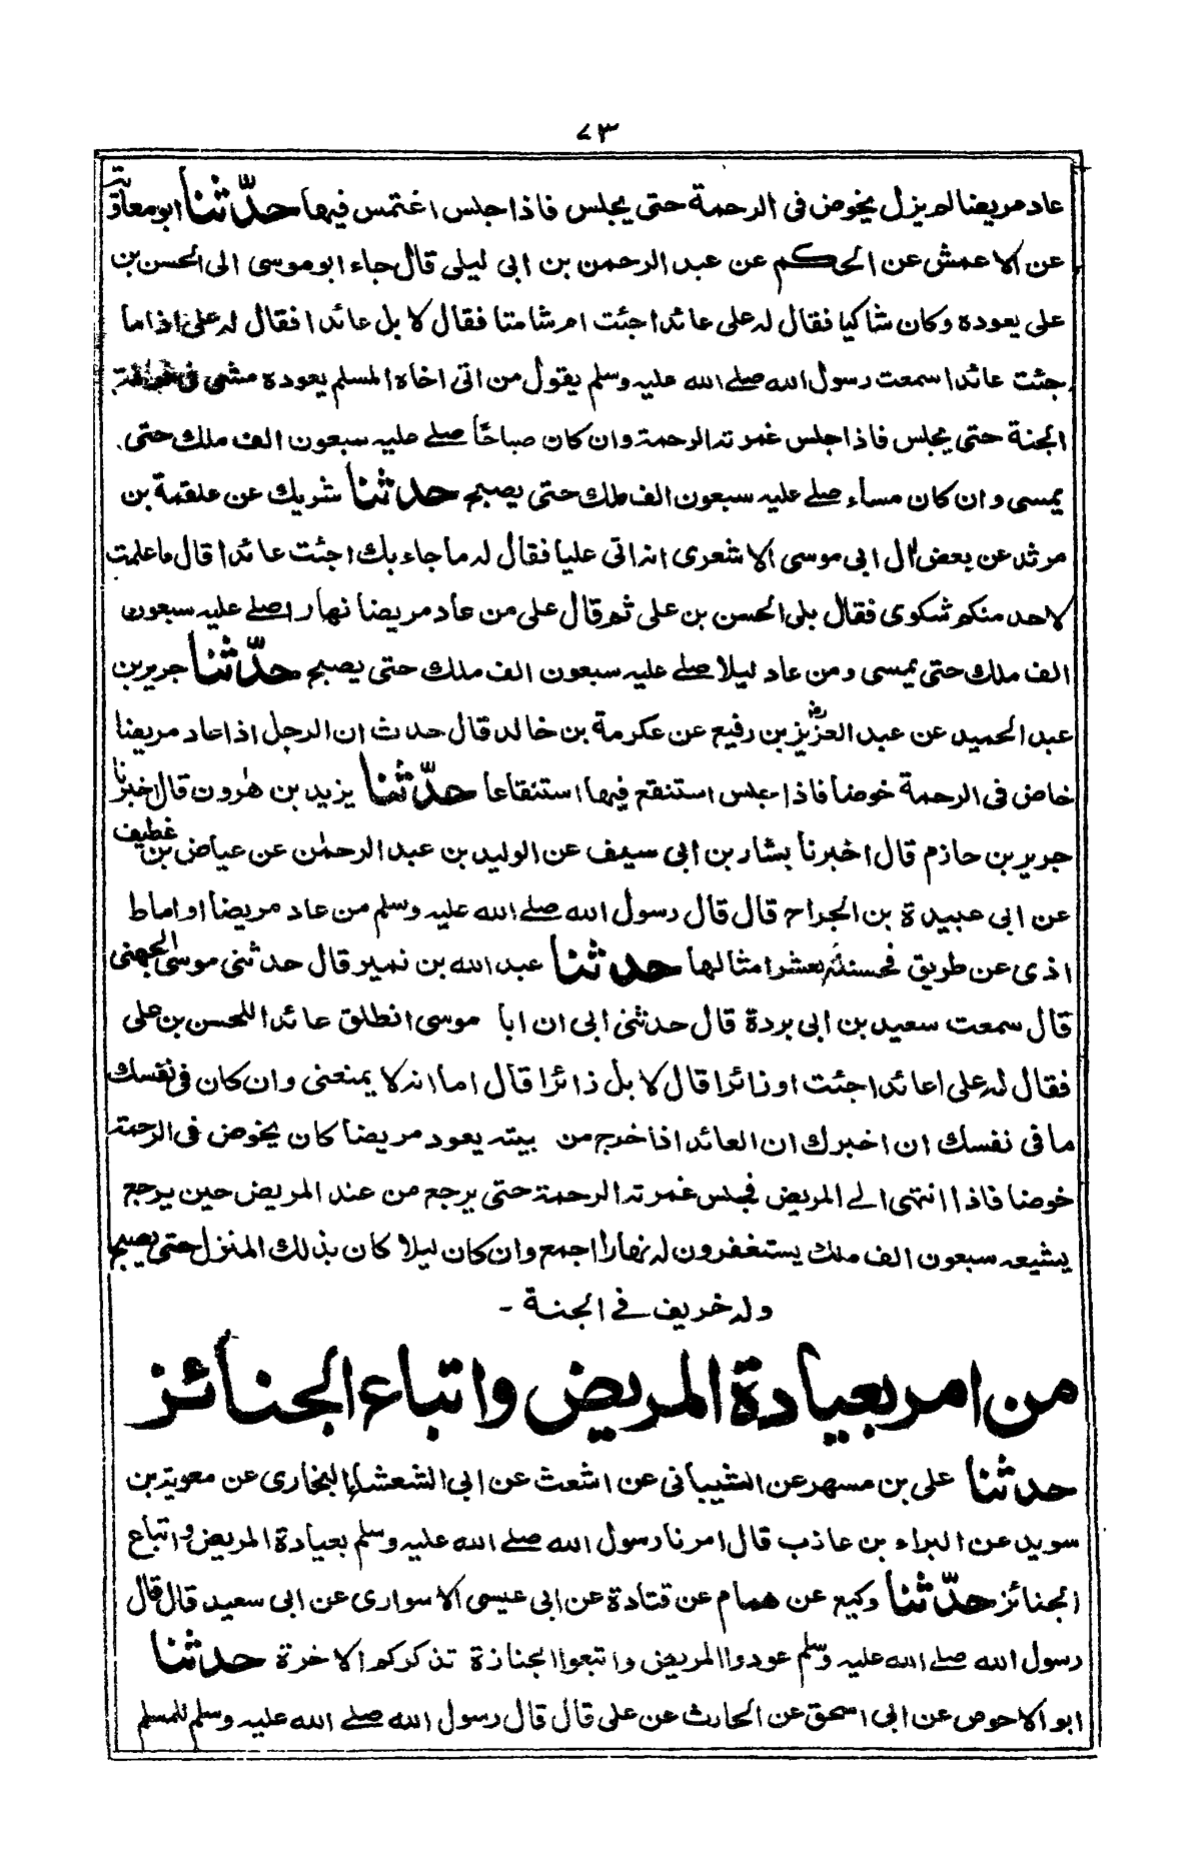 ٧٣
عاد مريضا لم يزل يخوض فى الرحمة حتى يجلس فاذا جلس اغتمس فيها حدّثنا ابو معاوية
عن الاعمش عن الحكم عن عبد الرحمن بن ابى ليلى قال جاء ابو موسى الى الحسن بن
على يعوده وكان شاكيا فقال له على عائدا جئت ام شامتا فقال لا بل عائدا فقال له على اذا ما
جئت عائدا سمعت رسول الله صلے الله عليه وسلم يقول من اتى اخاه المسلم يعوده مشى فى
الجنة حتى يجلس فاذا جلس غمرته الرحمة وان كان صباحًا صلے عليه سبعون الف ملك حتى
يمسى وان كان مساء صلے عليه سبعون الف ملك حتى يصبح حدثنا شريك عن علقمة بن
مرثد عن بعض آل ابى موسى الاشعرى انه اتى عليا فقال له ما جاء بك اجئت عائدا قال ما علمت
لاحد منكم شكوى فقال بلى الحسن بن على ثم قال على من عاد مريضا نهارا صلے عليه سبعون
الف ملك حتى يمسى ومن عاد ليلا صلے عليه سبعون الف ملك حتى يصبح حدّثنا جرير بن
عبد الحميد عن عبد العزيز بن رفيع عن عكرمة بن خالد قال حدث ان الرجل اذا عاد مريضا
خاض فى الرحمة خوضا فاذا جلس استنقع فيها استنقاعا حدّثنا يزيد بن هٰرون قال اخبرنا
جرير بن حازم قال اخبرنا بشار بن ابى سيف عن الوليد بن عبد الرحمٰن عن عياض بن غطيف
عن ابى عبيدة بن الجراح قال قال رسول الله صلے الله عليه وسلم من عاد مريضا او اماط
اذى عن طريق فحسنته بعشر امثالها حدثنا عبد الله بن نمير قال حدثنى موسى الجهنى
قال سمعت سعيد بن ابى بردة قال حدثنى ابى ان ابا موسى انطلق عائدا للحسن بن على
فقال له على اعائدا جئت او زائرا قال لا بل زائرا قال اما انه لا يمنعنى وان كان فى نفسك
ما فى نفسك ان اخبرك ان العائد اذا خرج من بيته يعود مريضا كان يخوض فى الرحمة
خوضا فاذا انتهى الے المريض فجلس غمرته الرحمة حتى يرجع من عند المريض حين يرجع
يشيعه سبعون الف ملك يستغفرون له نهارا اجمع وان كان ليلا كان بذلك المنزل حتى يصبح
وله خريف فے الجنة -
من امر بعيادة المريض واتباع الجنائز
حدثنا على بن مسهر عن الشيبانى عن اشعث عن ابى الشعشاء البخارى عن معوية بن
سويد عن البراء بن عاذب قال امرنا رسول الله صلے الله عليه وسلم بعيادة المريض واتباع
الجنائز حدّثنا وكيع عن همام عن قتادة عن ابى عيسى الاسوارى عن ابى سعيد قال قال
رسول الله صلے الله عليه وسلم عودوا المريض واتبعوا الجنازة تذكركم الاخرة حدثنا
ابو الاحوص عن ابى اسحق عن الحارث عن على قال قال رسول الله صلے الله عليه وسلم للمسلم